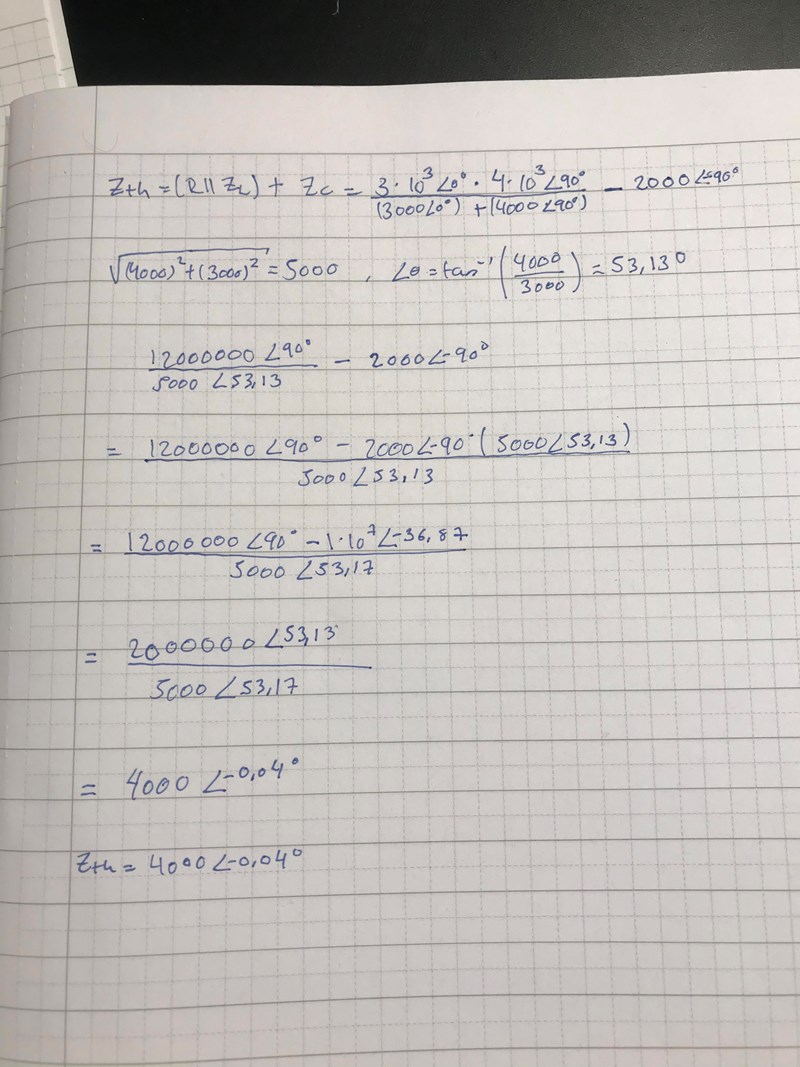 Zth = (R || ZL) + Zc = 3·10³∠0° · 4·10³∠90° / (3000∠0°) + (4000∠90°) − 2000∠-90°
√(4000)² + (3000)² = 5000 , ∠θ = tan⁻¹(4000/3000) = 53,13°
12000000∠90° / 5000∠53,13 − 2000∠-90°
= 12000000∠90° − 2000∠-90°(5000∠53,13) / 5000∠53,13
= 12000000∠90° − 1·10⁷∠-36,87 / 5000∠53,17
= 2000000∠53,13 / 5000∠53,17
= 4000∠-0,04°
Zth = 4000∠-0,04°